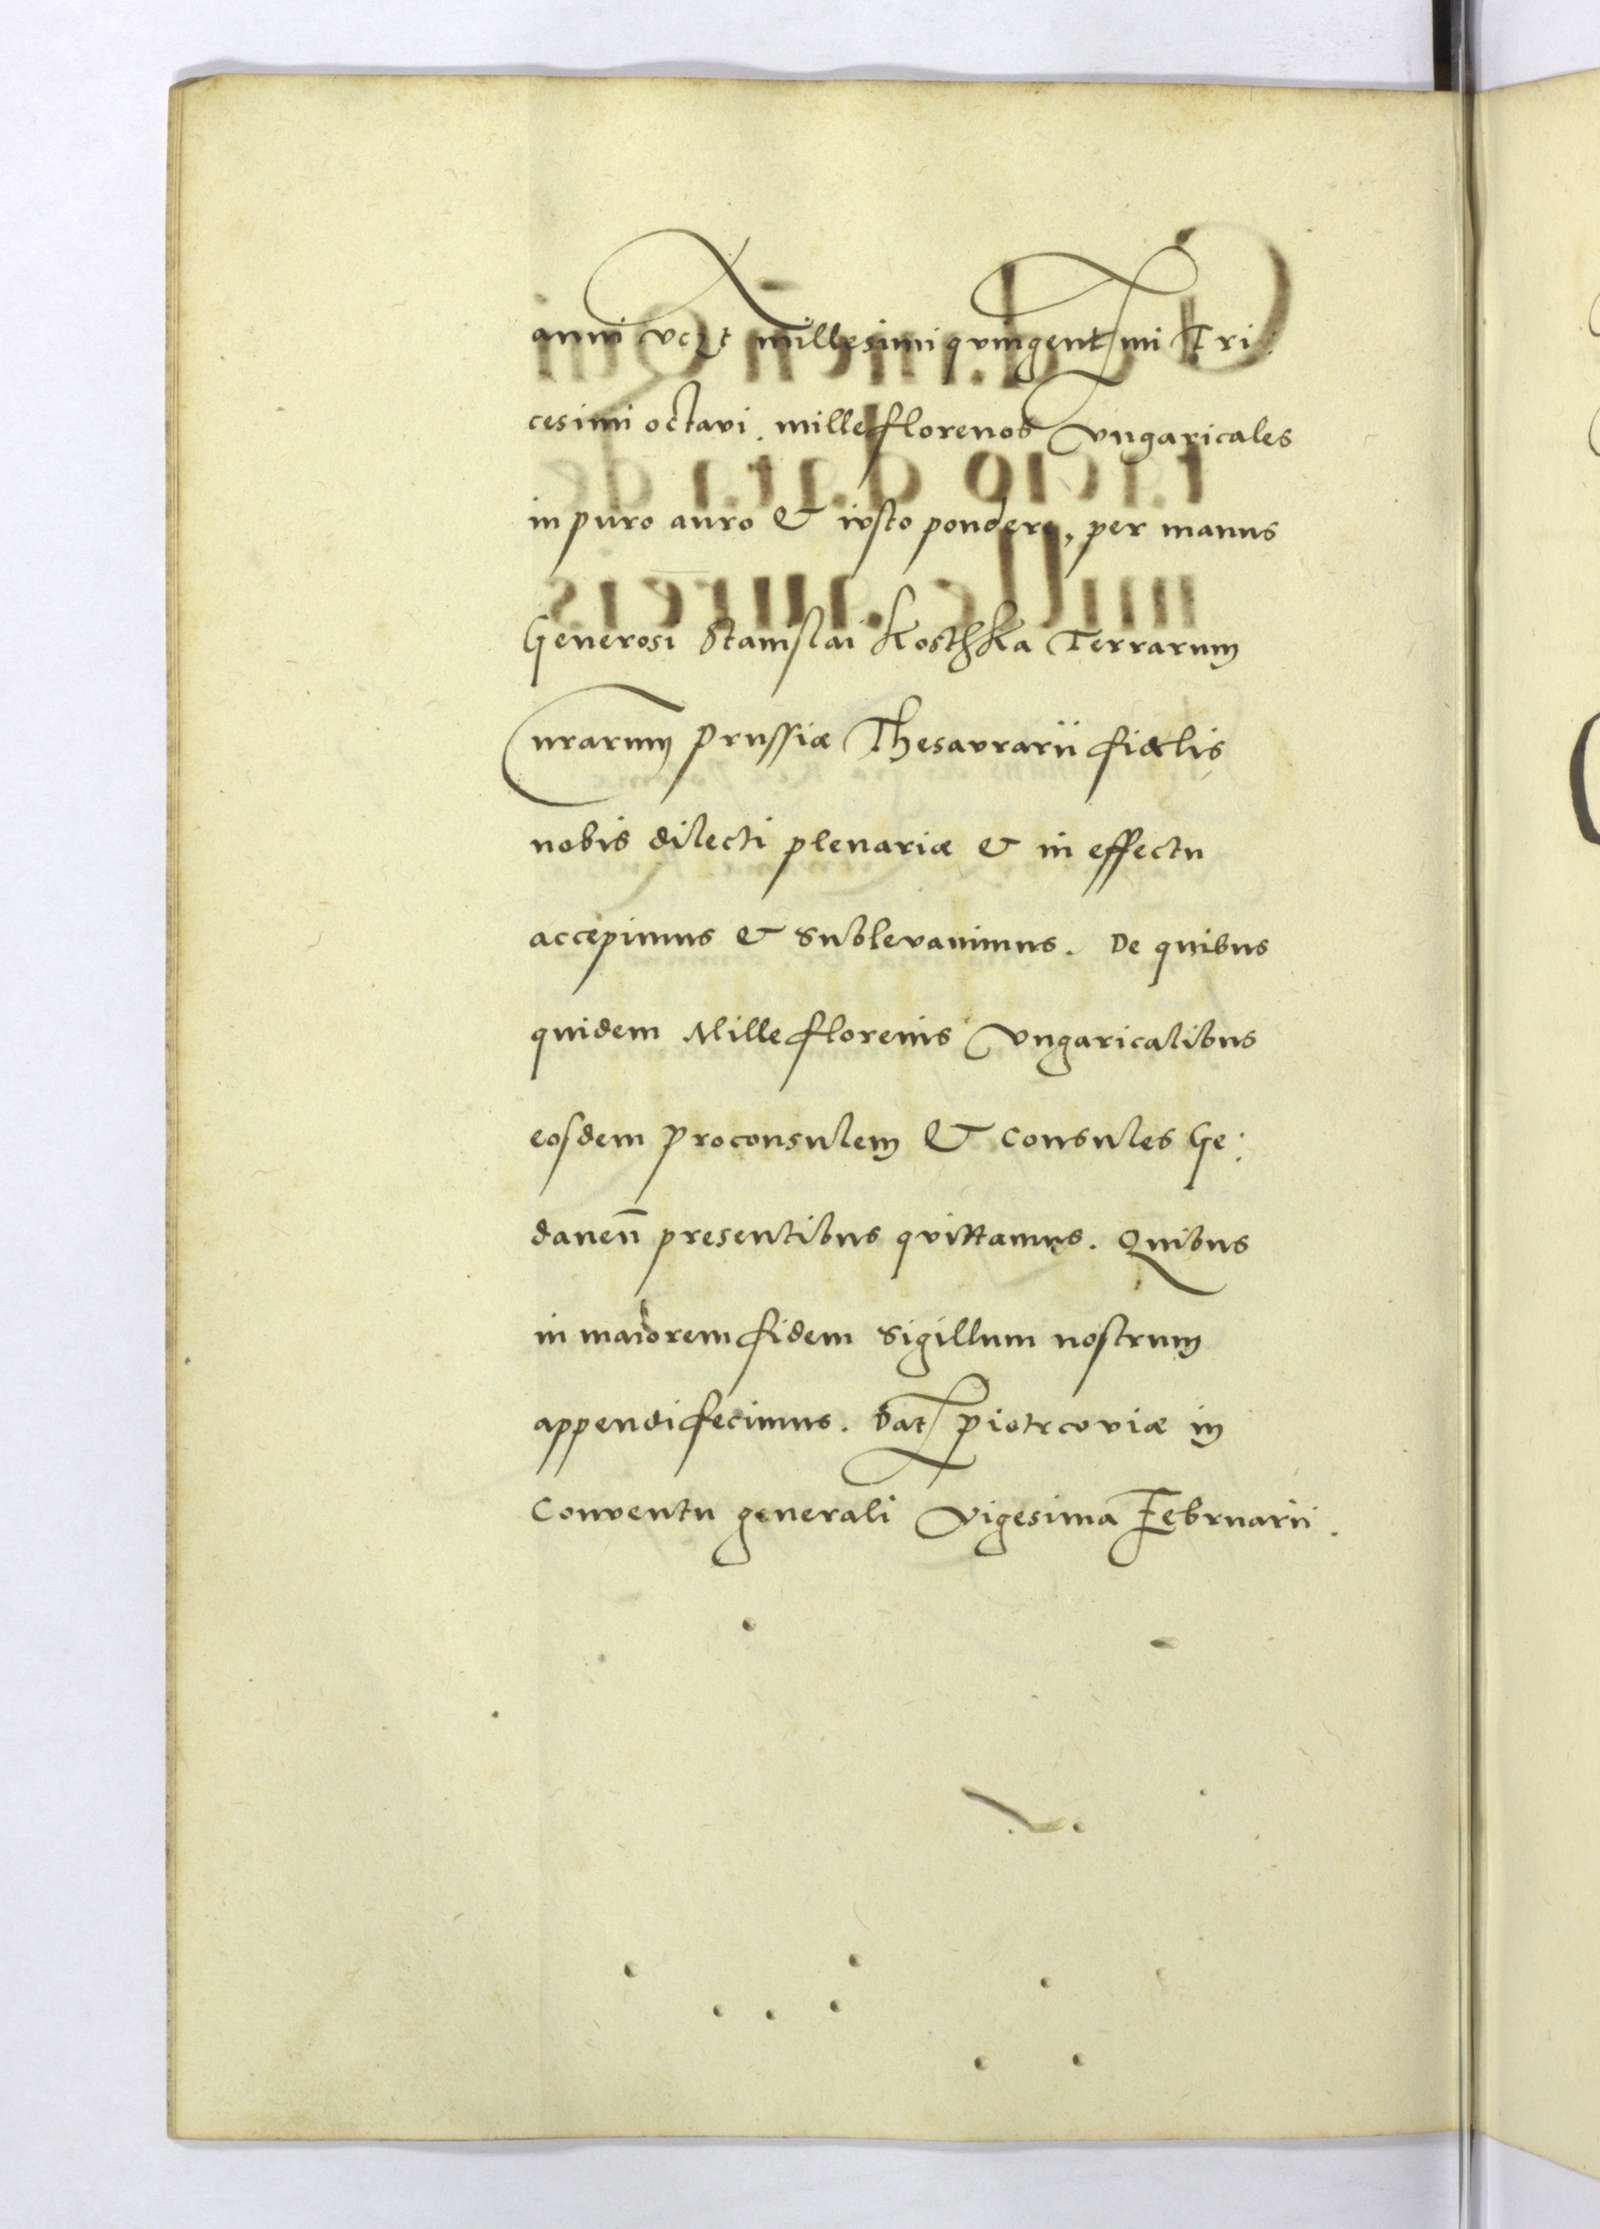 anni vczt millesimi quingentmi Tri:
cesimi octavi. mille florenos vngaricales
in puro auro & iusto pondere, per manus
Generosi Stanislai Kosthka Terrarum
nrarum Prussiæ Thesaurarii fidelis
nobis dilecti plenariæ & in effectu
accepimus & Sublevavimus. De quibus
quidem Mille florenis vngaricalibus
eosdem Proconsulem & Consules Ge:
danen̄ presentibus quittamus. Quibus
in maiorem fidem Sigillum nostrum
appendi fecimus. Dat Piotrcoviæ in
Conventu generali vigesima Februarii.